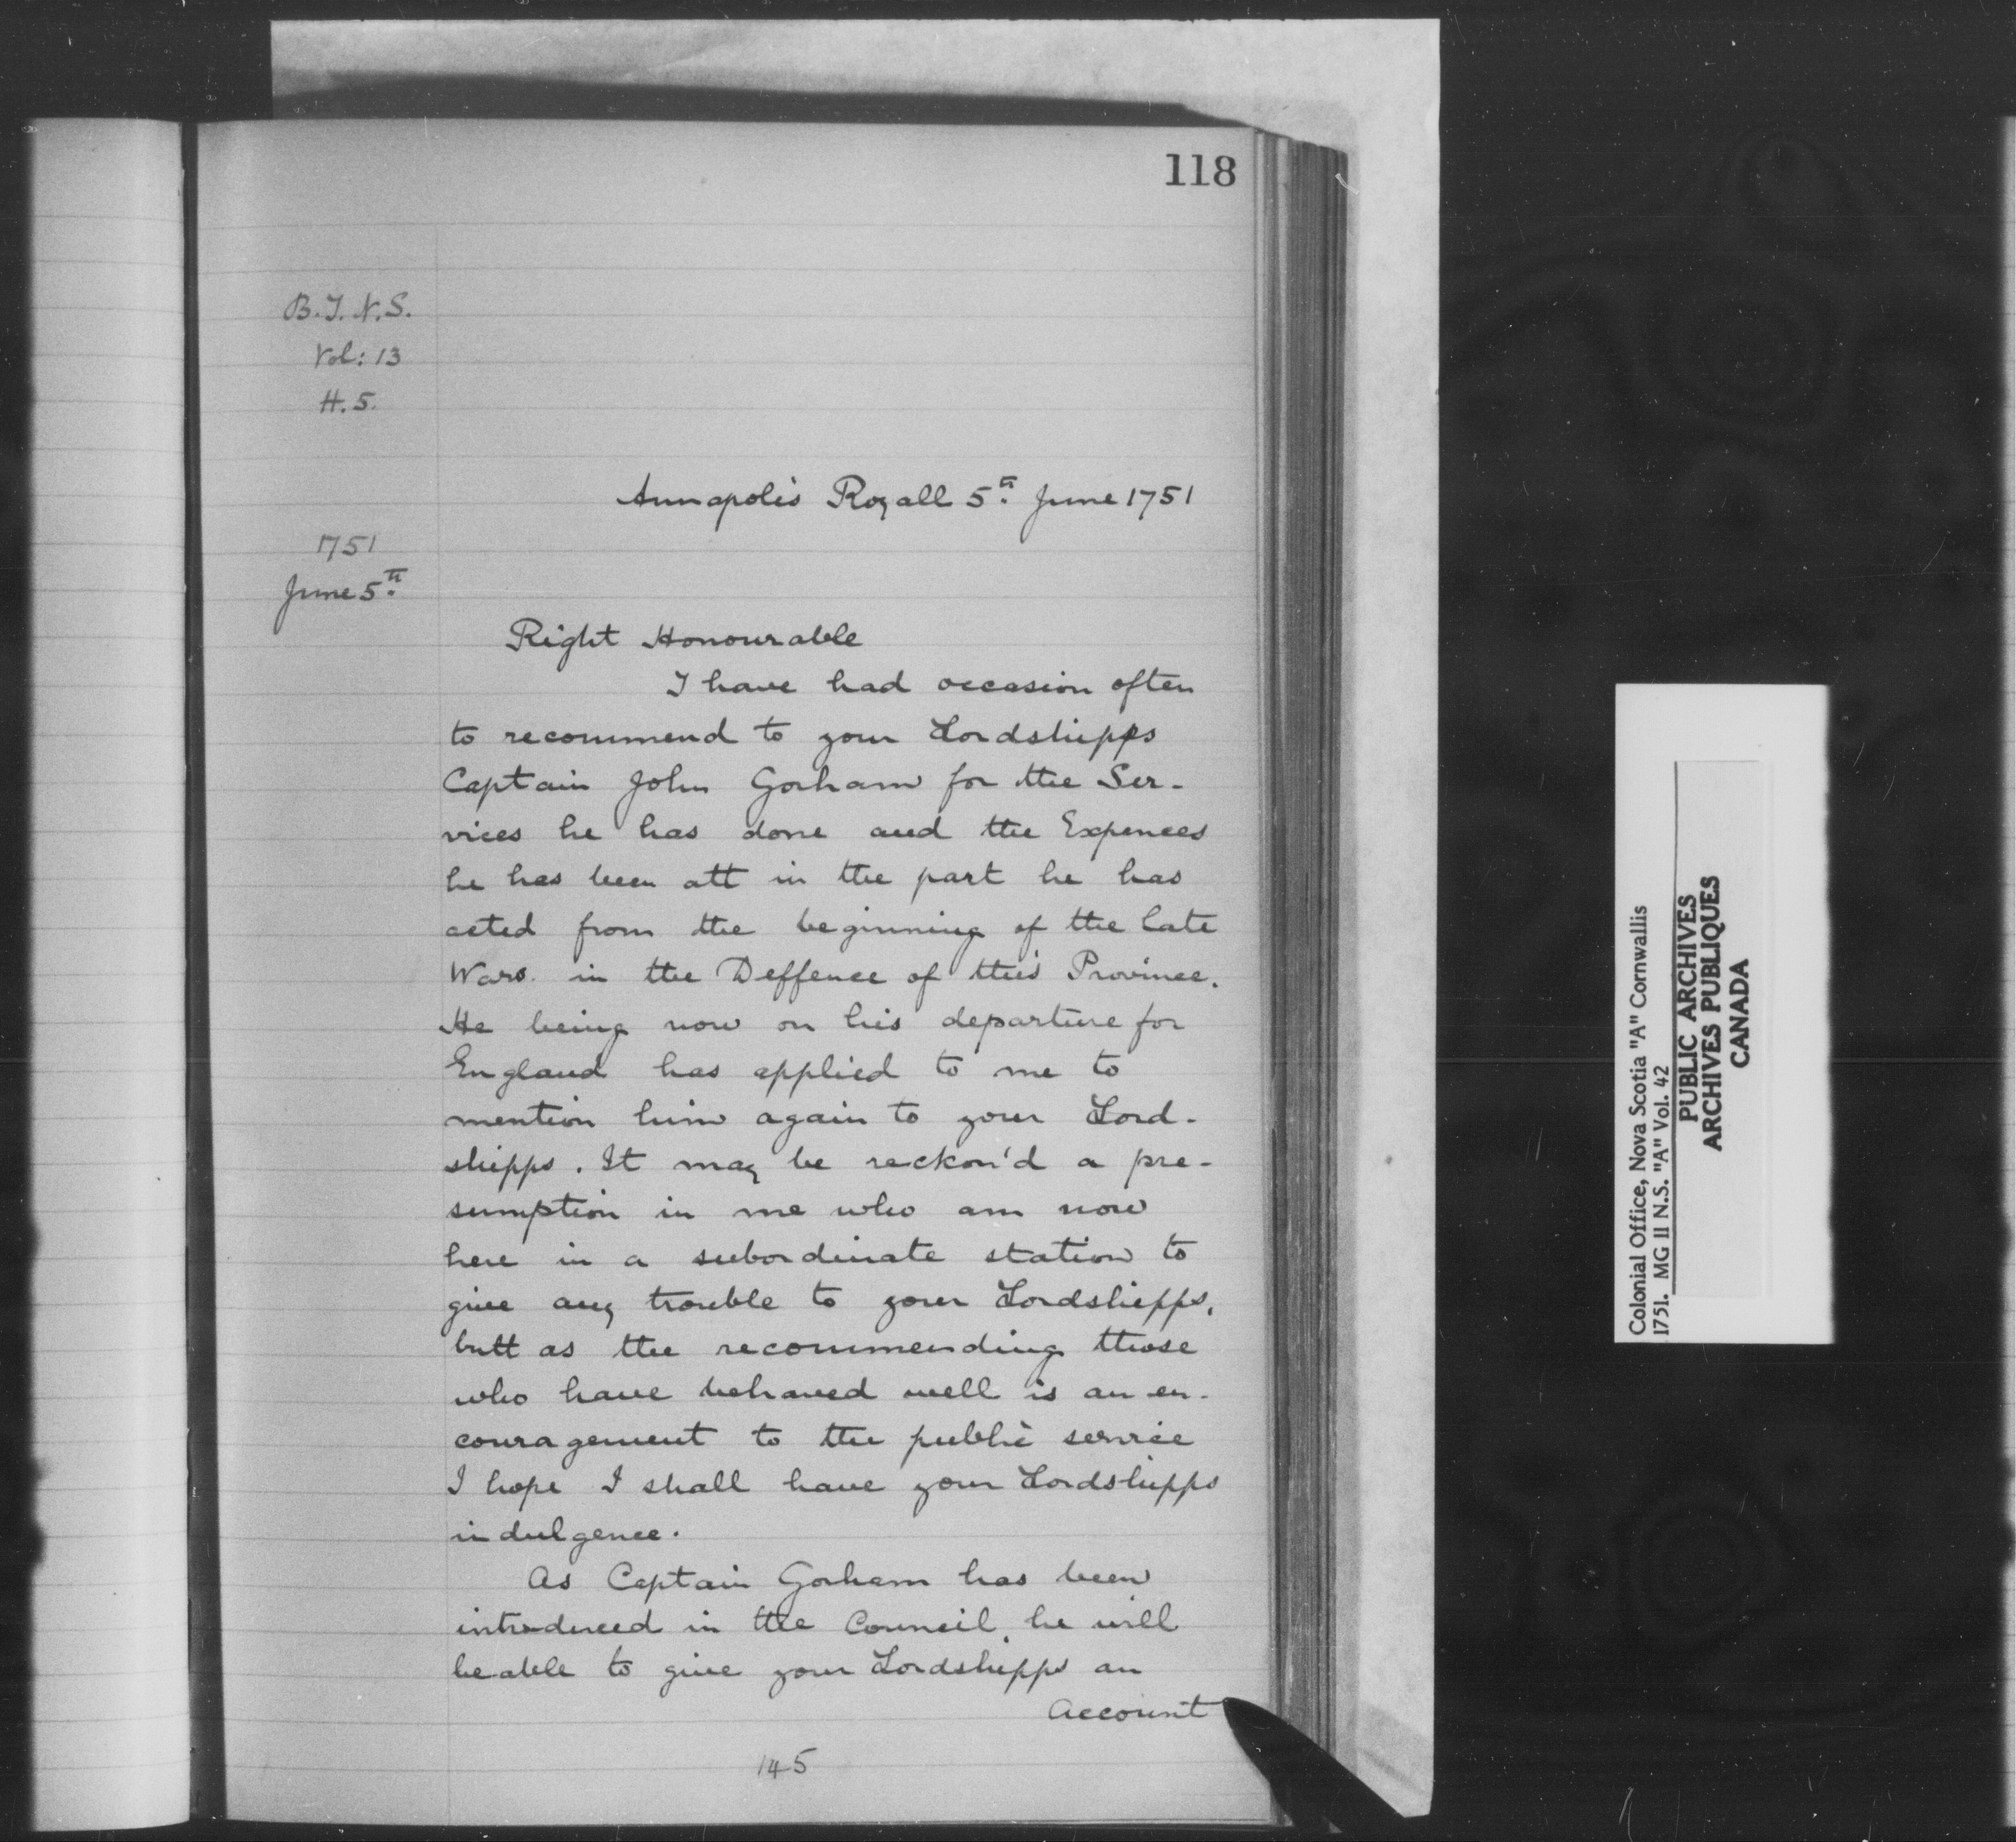 118
B.T. N.S.
Vol: 13
H. 5.
Annapolis Royall 5th. June 1751
1751
June 5th.
Right Honourable
I have had occasion often
to recommend to your Lordshipps
Captain John Gorham for the Ser-
vices he has done and the Expences
he has been att in the part he has
acted from the beginning of the late
Wars. in the Deffence of this Province.
He being now on his departure for
England has applied to me to
mention him again to your Lord-
shipps. It may be reckon'd a pre-
sumption in me who am now
here in a subordinate station to
give any trouble to your Lordshipps,
butt as the recommending those
who have behaved well is an en-
couragement to the public service
I hope I shall have your Lordshipps
indulgence.
As Captain Gorham has been
introduced in the Council, he will
be able to give your Lordshipps an
Account
145
Colonial Office, Nova Scotia "A" Cornwallis
1751. MG II N.S. "A" Vol. 42
PUBLIC ARCHIVES
ARCHIVES PUBLIQUES
CANADA